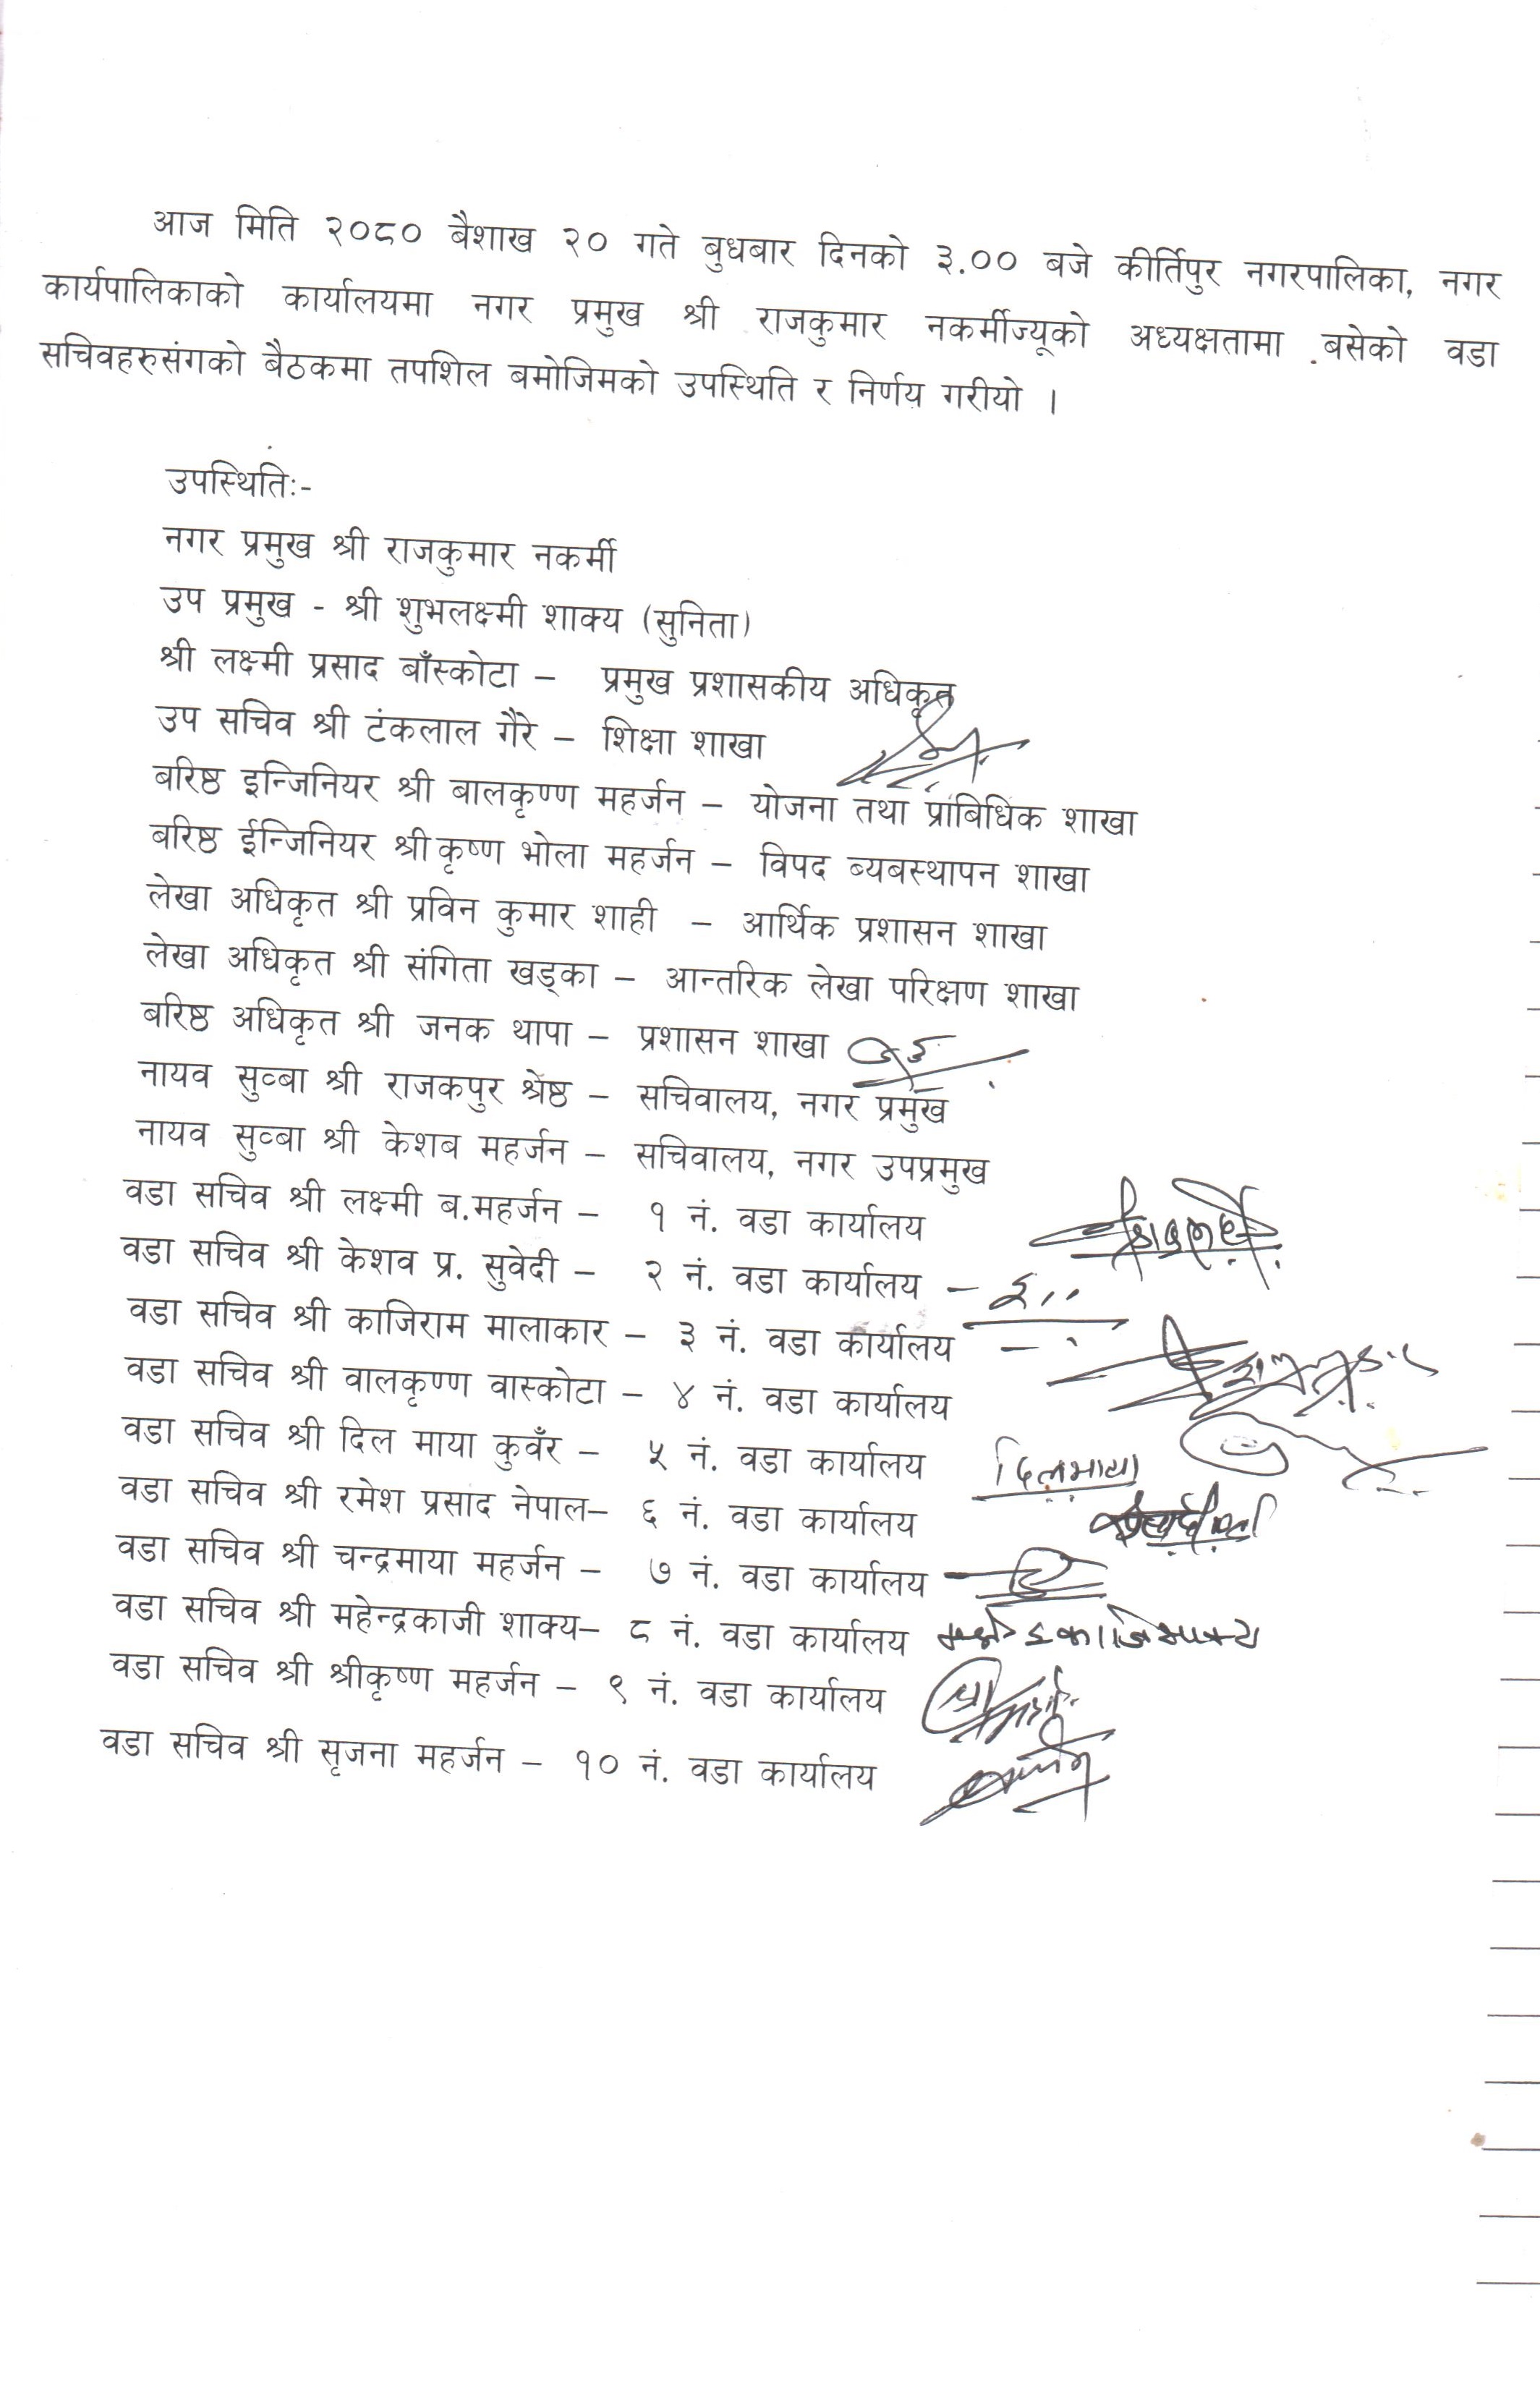 आज मिति २०८० बैशाख २० गते बुधबार दिनको ३.०० बजे कीर्तिपुर नगरपालिका, नगर
कार्यपालिकाको कार्यालयमा नगर प्रमुख श्री राजकुमार नकर्मीज्यूको अध्यक्षतामा बसेको वडा
सचिवहरुसंगको बैठकमा तपशिल बमोजिमको उपस्थिति र निर्णय गरीयो ।
उपस्थितिः-
नगर प्रमुख श्री राजकुमार नकर्मी
उप प्रमुख - श्री शुभलक्ष्मी शाक्य (सुनिता)
श्री लक्ष्मी प्रसाद बाँस्कोटा – प्रमुख प्रशासकीय अधिकृत
उप सचिव श्री टंकलाल गैरे – शिक्षा शाखा
बरिष्ठ इन्जिनियर श्री बालकृष्ण महर्जन – योजना तथा प्राबिधिक शाखा
बरिष्ठ ईन्जिनियर श्री कृष्ण भोला महर्जन – विपद ब्यबस्थापन शाखा
लेखा अधिकृत श्री प्रविन कुमार शाही – आर्थिक प्रशासन शाखा
लेखा अधिकृत श्री संगिता खड्का – आन्तरिक लेखा परिक्षण शाखा
बरिष्ठ अधिकृत श्री जनक थापा – प्रशासन शाखा
नायव सुव्बा श्री राजकपुर श्रेष्ठ – सचिवालय, नगर प्रमुख
नायव सुव्बा श्री केशब महर्जन – सचिवालय, नगर उपप्रमुख
वडा सचिव श्री लक्ष्मी ब.महर्जन – १ नं. वडा कार्यालय
वडा सचिव श्री केशव प्र. सुवेदी – २ नं. वडा कार्यालय –
वडा सचिव श्री काजिराम मालाकार – ३ नं. वडा कार्यालय –
वडा सचिव श्री वालकृष्ण वास्कोटा – ४ नं. वडा कार्यालय
वडा सचिव श्री दिल माया कुवँर – ५ नं. वडा कार्यालय दिलमाया
वडा सचिव श्री रमेश प्रसाद नेपाल– ६ नं. वडा कार्यालय
वडा सचिव श्री चन्द्रमाया महर्जन – ७ नं. वडा कार्यालय
वडा सचिव श्री महेन्द्रकाजी शाक्य– ८ नं. वडा कार्यालय
वडा सचिव श्री श्रीकृष्ण महर्जन – ९ नं. वडा कार्यालय
वडा सचिव श्री सृजना महर्जन – १० नं. वडा कार्यालय